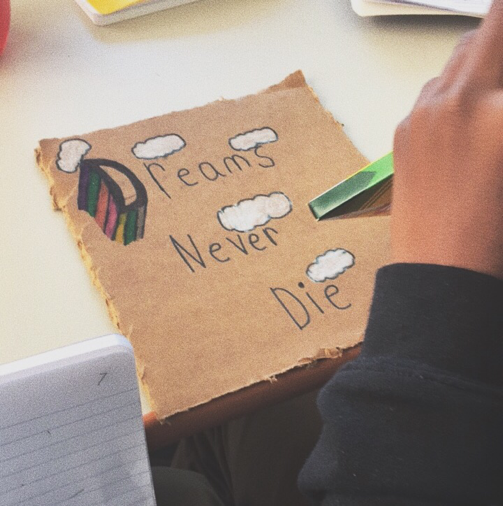 Dreams
Never
Die